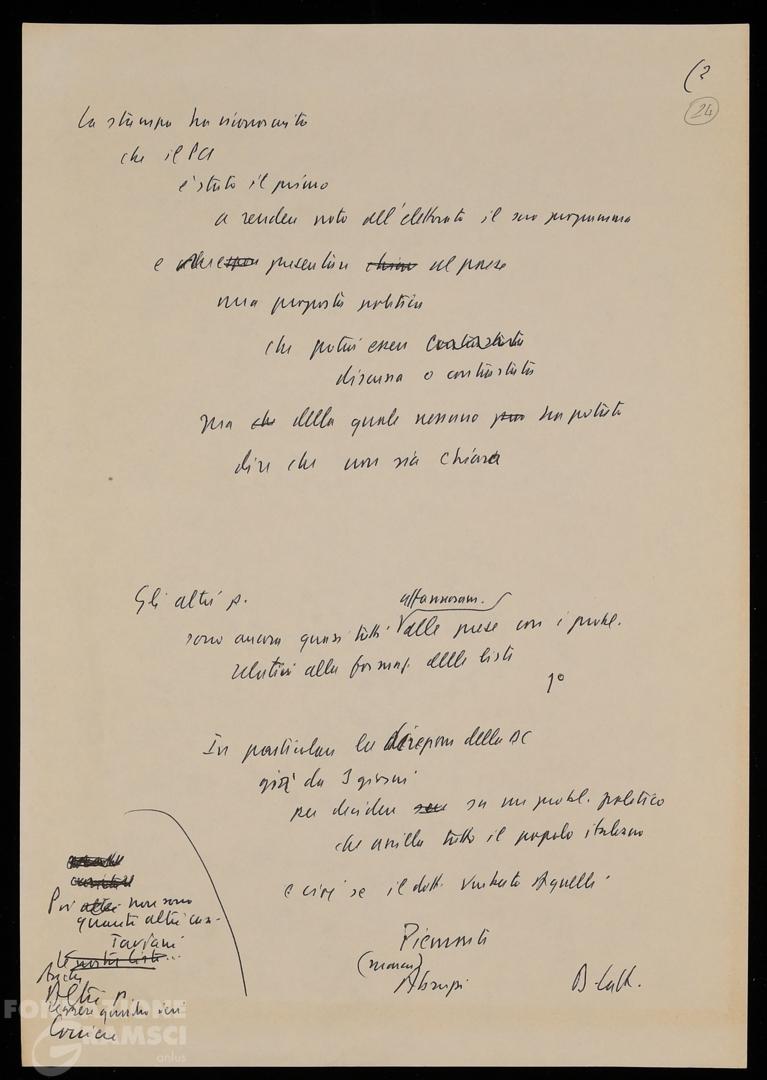 (2
24
La stampa ha riconosciuto
che il PCI
è stato il primo
a rendere noto all'elettorato il suo programma
e presentare al paese
una proposta politica
che potrà essere contrastata
discussa o contrastata
ma che della quale nessuno può ha potuto
dire che non sia chiara
Gli altri p.
affannosam.
sono ancora quasi tutti alle prese con i probl.
relativi alla formaz. delle liste
1º
In particolare la direzione della DC
già da 3 giorni
per decidere su un probl. politico
che assilla tutto il popolo italiano
e cioè se il dott. Umberto Agnelli
Piemonte
(Monaco)
Abruzzi
Poi altri non sono
quanti altri
Taviani
Le nostre liste...
Anche
Altri p.
leggere quando ieri
Corriere
FONDAZIONE
GRAMSCI
onlus